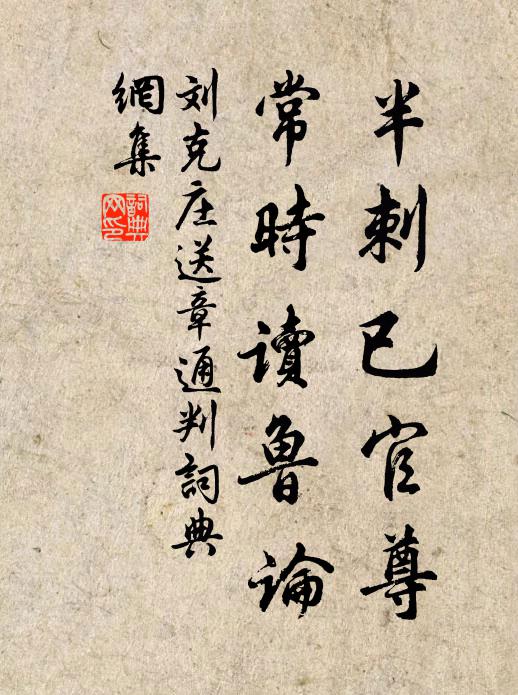 半刺已官尊
常時讀魯論
刘克庄送章通判詞典
網集
詞典網印